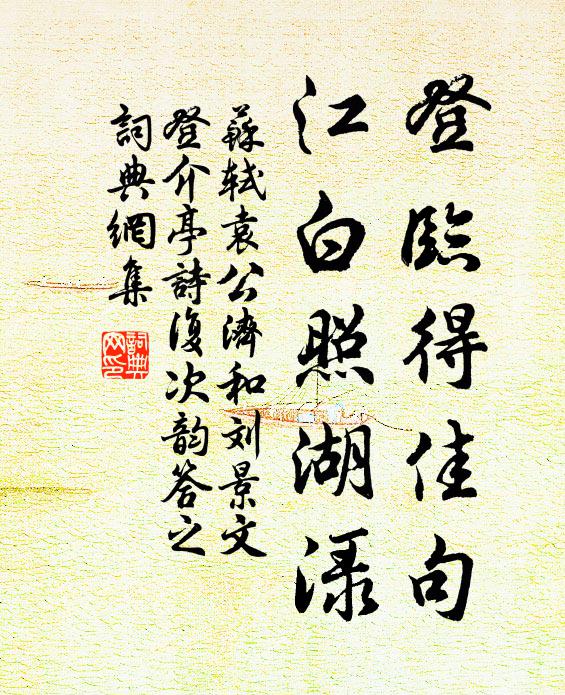 登臨得佳句
江白照湖渌
蘇轼袁公濟和刘景文
登介亭詩復次韵答之
詞典網集
詞典
网印